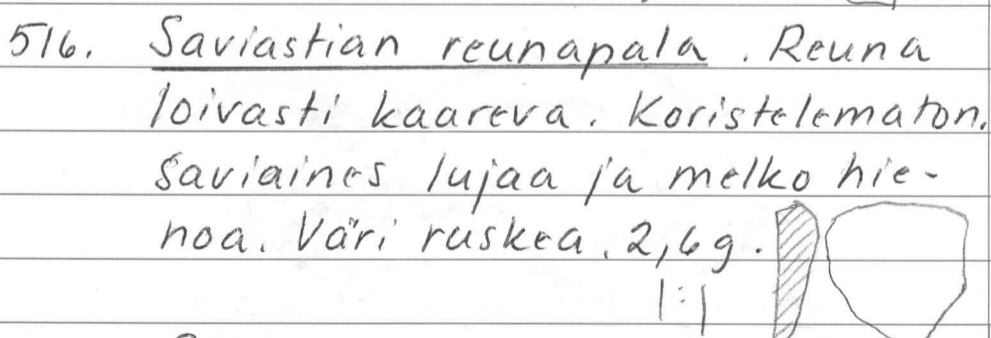 516. Saviastian reunapala. Reuna
loivasti kaareva. Koristelematon.
Saviaines lujaa ja melko hie-
noa. Väri ruskea. 2,6g.
1:1